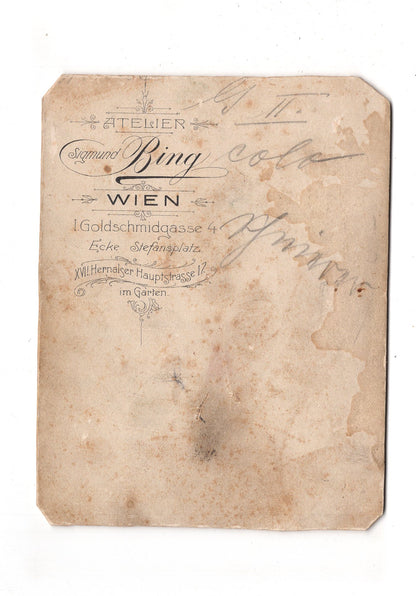 ATELIER
Sigmund Bing
WIEN
I. Goldschmidgasse 4
Ecke Stefansplatz.
XVII. Hernalser Hauptstrasse 17
im Garten.
II.
colo